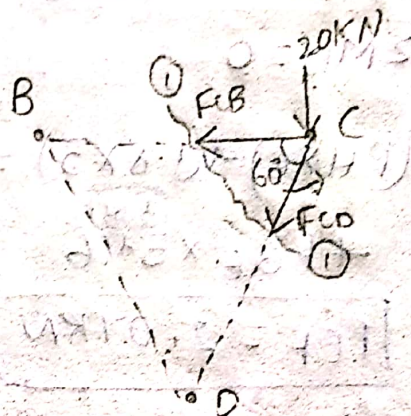 20KN
①
B
FCB
C
60°
FCD
①
D